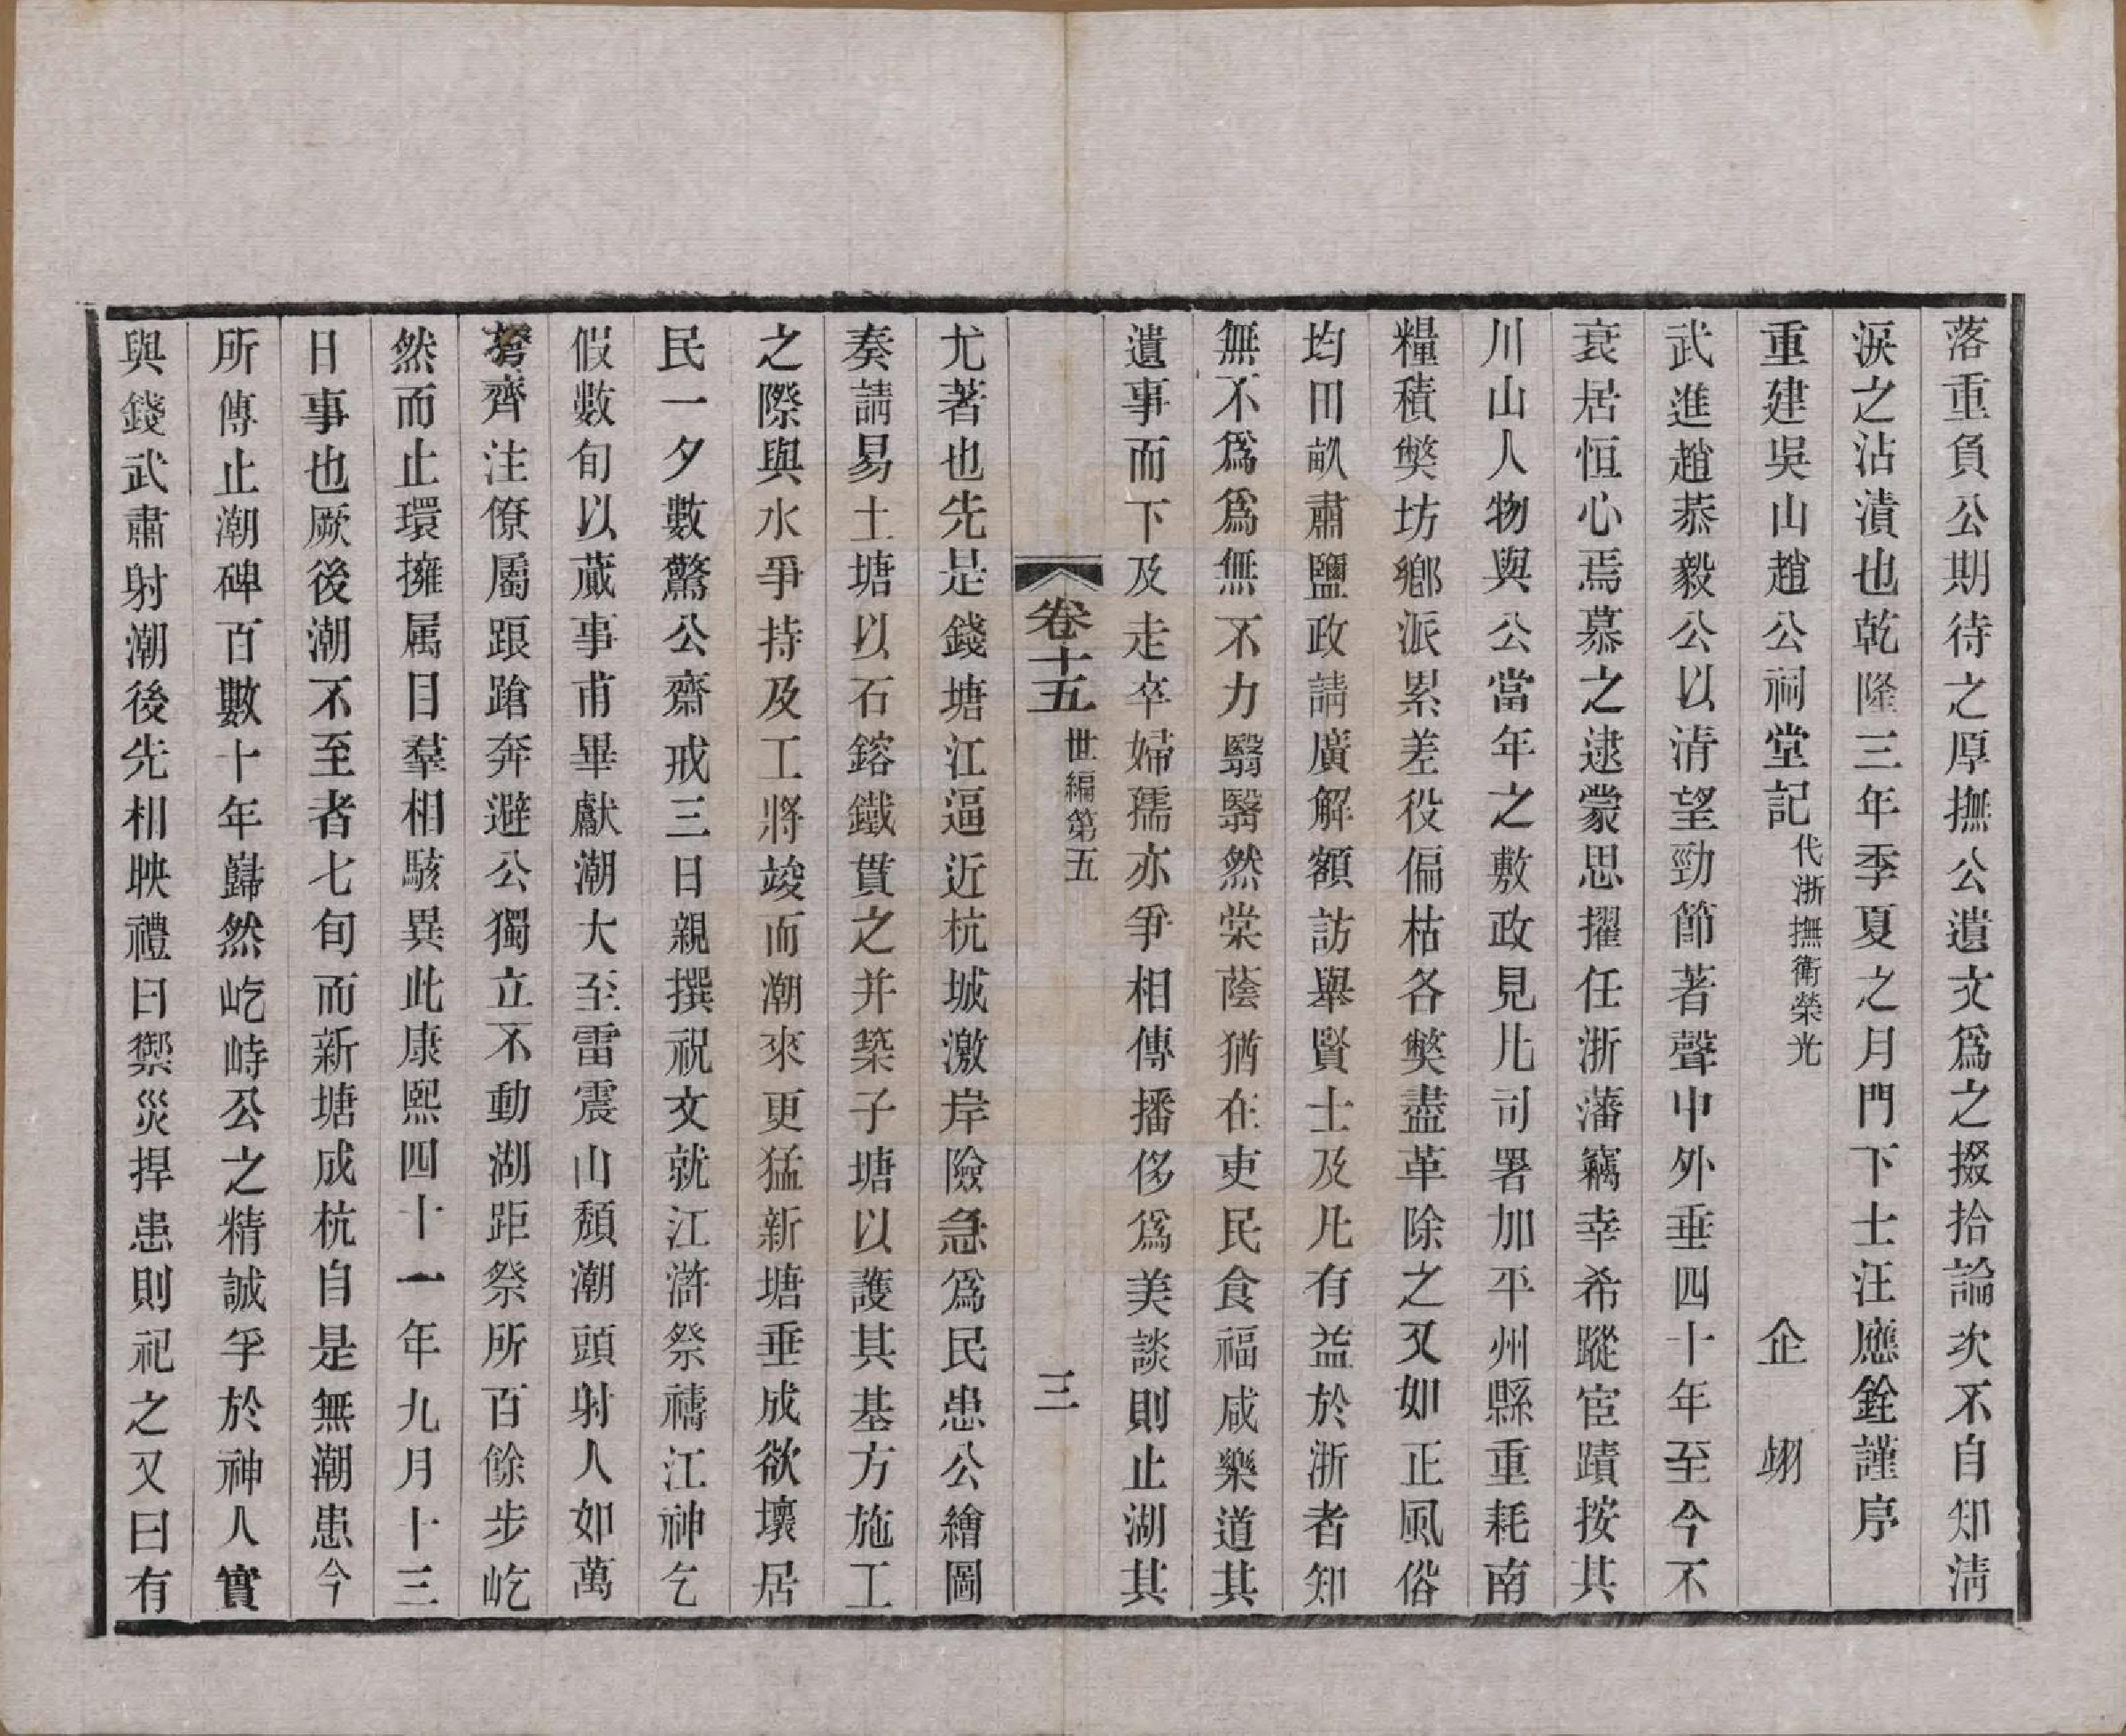 落重負公期待之厚撫公遺文爲之掇拾論次不自知淸
淚之沾漬也乾隆三年季夏之月門下士汪應銓謹序
重建吳山趙公祠堂記代浙撫衛榮光 企翊
武進趙恭毅公以清望勁節著聲中外垂四十年至今不
衰居恒心焉慕之逮蒙思擢任浙藩竊幸希蹤宦蹟按其
川山人物與公當年之敷政見凡司署加平州縣重耗南
糧積獘坊鄉派累差役偏枯各獘盡革除之又如正風俗
均田畝肅鹽政請廣解額訪舉賢士及凡有益於浙者知
無不爲爲無不力翳翳然棠蔭猶在吏民食福咸樂道其
遺事而下及走卒婦孺亦爭相傳播侈爲美談則止湖其
卷十五 世編第五 三
尤著也先是錢塘江逼近杭城激岸險急爲民患公繪圖
奏請易土塘以石鎔鐵貫之并築子塘以護其基方施工
之際與水爭持及工將竣而潮來更猛新塘垂成欲壞居
民一夕數驚公齋戒三日親撰祝文就江滸祭禱江神乞
假數旬以蕆事甫畢獻潮大至雷震山頽潮頭射人如萬
弩齊注僚屬踉蹌奔避公獨立不動湖距祭所百餘步屹
然而止環擁属目羣相駭異此康熙四十一年九月十三
日事也厥後潮不至者七旬而新塘成杭自是無潮患今
所傳止潮碑百數十年巋然屹峙公之精誠孚於神人實
與錢武肅射潮後先相映禮曰禦災捍患則祀之又曰有